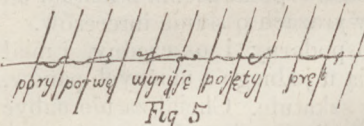 pory porwę wyryję pojęty pręt
Fig 5